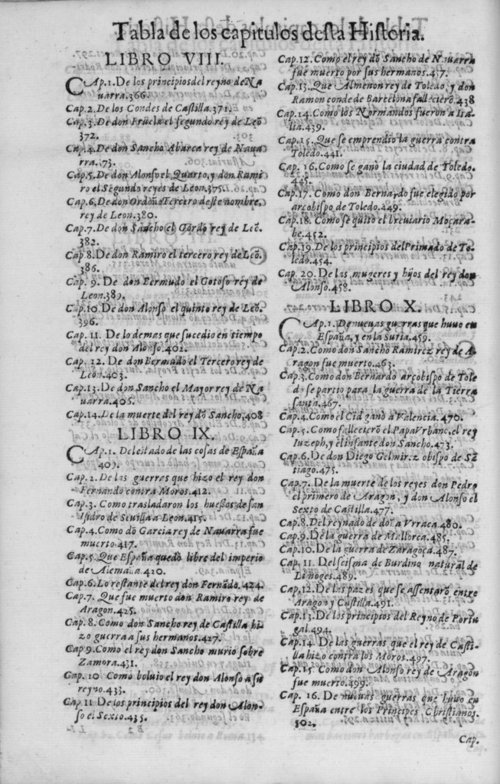 Tabla de los capitulos desta Historia.
LIBRO VIII.
CAp.1. De los principios del reyno de Na
uarra.366.
Cap.2. De los Condes de Castilla.371.
Cap.3. De don Fruela el segundo rey de Leõ
372.
Cap.4. De don Sancho Abarca rey de Naua
rra. 73.
Cap.5. De don Alonso el Quarto, y don Rami
ro el Segundo reyes de Leon.375.
Cap.6. De don Ordoño Tercero deste nombre,
rey de Leon.380.
Cap.7. De don Sancho el Gordo rey de Leõ
382.
Cap.8. De don Ramiro el tercero rey de Leõ.
386.
Cap.9. De don Bermudo el Gotoso rey de
Leon.389.
Cap.10. De don Alonso el quinto rey de Leõ.
396.
Cap.11. De lo demas que sucedio en tiempo
del rey don Alonso.402.
Cap. 12. De don Bermudo el Tercero rey de
Leon.403.
Cap.13. De don Sancho el Mayor rey de Na
uarra.405.
Cap.14. De la muerte del rey dõ Sancho.408
LIBRO IX.
CAp.1. Del estado de las cosas de España
409.
Cap.2. De las guerras que hizo el rey don
Fernando contra Moros.412.
Cap.3. Como trasladaron los huessos de san
Isidro de Seuilla a Leon.415.
Cap.4. Como dõ Garcia rey de Nauarra fue
muerto.417.
Cap.5. Que España quedò libre del imperio
de Alemaña.420.
Cap.6. Lo restante del rey don Fernãdo.424.
Cap.7. Que fue muerto don Ramiro rey de
Aragon.425.
Cap.8. Como don Sancho rey de Castilla hi
zo guerra a sus hermanos.427.
Cap.9. Como el rey don Sancho murio sobre
Zamora.431.
Cap. 10 Como boluio el rey don Alonso a su
reyno.433.
Cap.11 De los principios del rey don Alon-
so el Sexto.435.
Cap.12. Como el rey dõ Sancho de Nauarra
fue muerto por sus hermanos.437.
Cap.13. Que Almenon rey de Toledo, y don
Ramon conde de Barcelona fallecierõ.438
Cap.14. Como los Normandos fueron a Ita
lia.439.
Cap.15. Que se emprendio la guerra contra
Toledo.441.
Cap.16. Como se ganò la ciudad de Toledo.
Cap.17. Como don Bernardo fue elegido por
arçobispo de Toledo.449.
Cap.18. Como se quitò el breuiario Moçara-
be.452.
Cap.19. De los principios del Primado de To-
ledo.454.
Cap. 20. De las mugeres y hijos del rey don
Alonso.458.
LIBRO X.
CAp.1. De nueuas guerras que huuo en
España, y en la Suria.459.
Cap.2. Como don Sancho Ramirez rey de A-
ragon fue muerto.463.
Cap.3. Como don Bernardo arçobispo de Tole
do se partio para la guerra de la Tierra
santa.467.
Cap.4. Como el Cid ganò a Valencia.470.
Cap.5. Como fallecierõ el Papa Vrbano, el rey
Iuzeph, y el infante don Sancho.473.
Cap.6. De don Diego Gelmirez obispo de Sã
tiago.475.
Cap.7. De la muerte de los reyes don Pedro
el primero de Aragon, y don Alonso el
Sexto de Castilla.477.
Cap.8. Del reynado de doña Vrraca.480.
Cap.9. De la guerra de Mallorca.485.
Cap.10. De la guerra de Zaragoça.487.
Cap. 11. Del scisma de Burdino natural de
Limoges.489.
Cap.12. De las pazes que se assentarõ entre
Aragon y Castilla.491.
Cap.13. De los principios del Reyno de Portu
gal.494.
Cap.14. De las guerras que el rey de Casti
lla hizo contra los Moros.497.
Cap.15. Como don Alonso rey de Aragon
fue muerto.499.
Cap. 16. De nueuas guerras que huuo en
España entre los Principes Christianos.
502.
Cap.